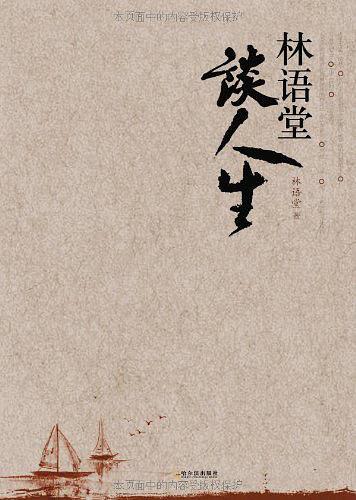 本页面中的内容受版权保护
林语堂
談人生
林语堂 著
哈尔滨出版社
本页面中的内容受版权保护